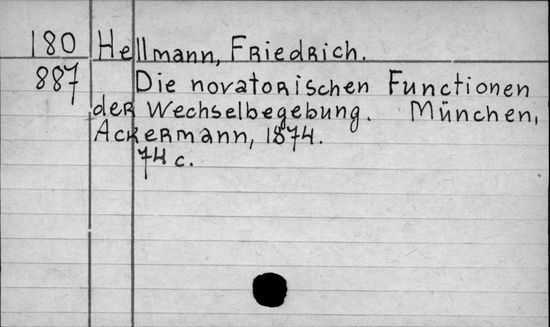 180 Hellmann, Friedrich.
887 Die novatorischen Functionen
der Wechselbegebung. München,
Ackermann, 1874.
74 c.